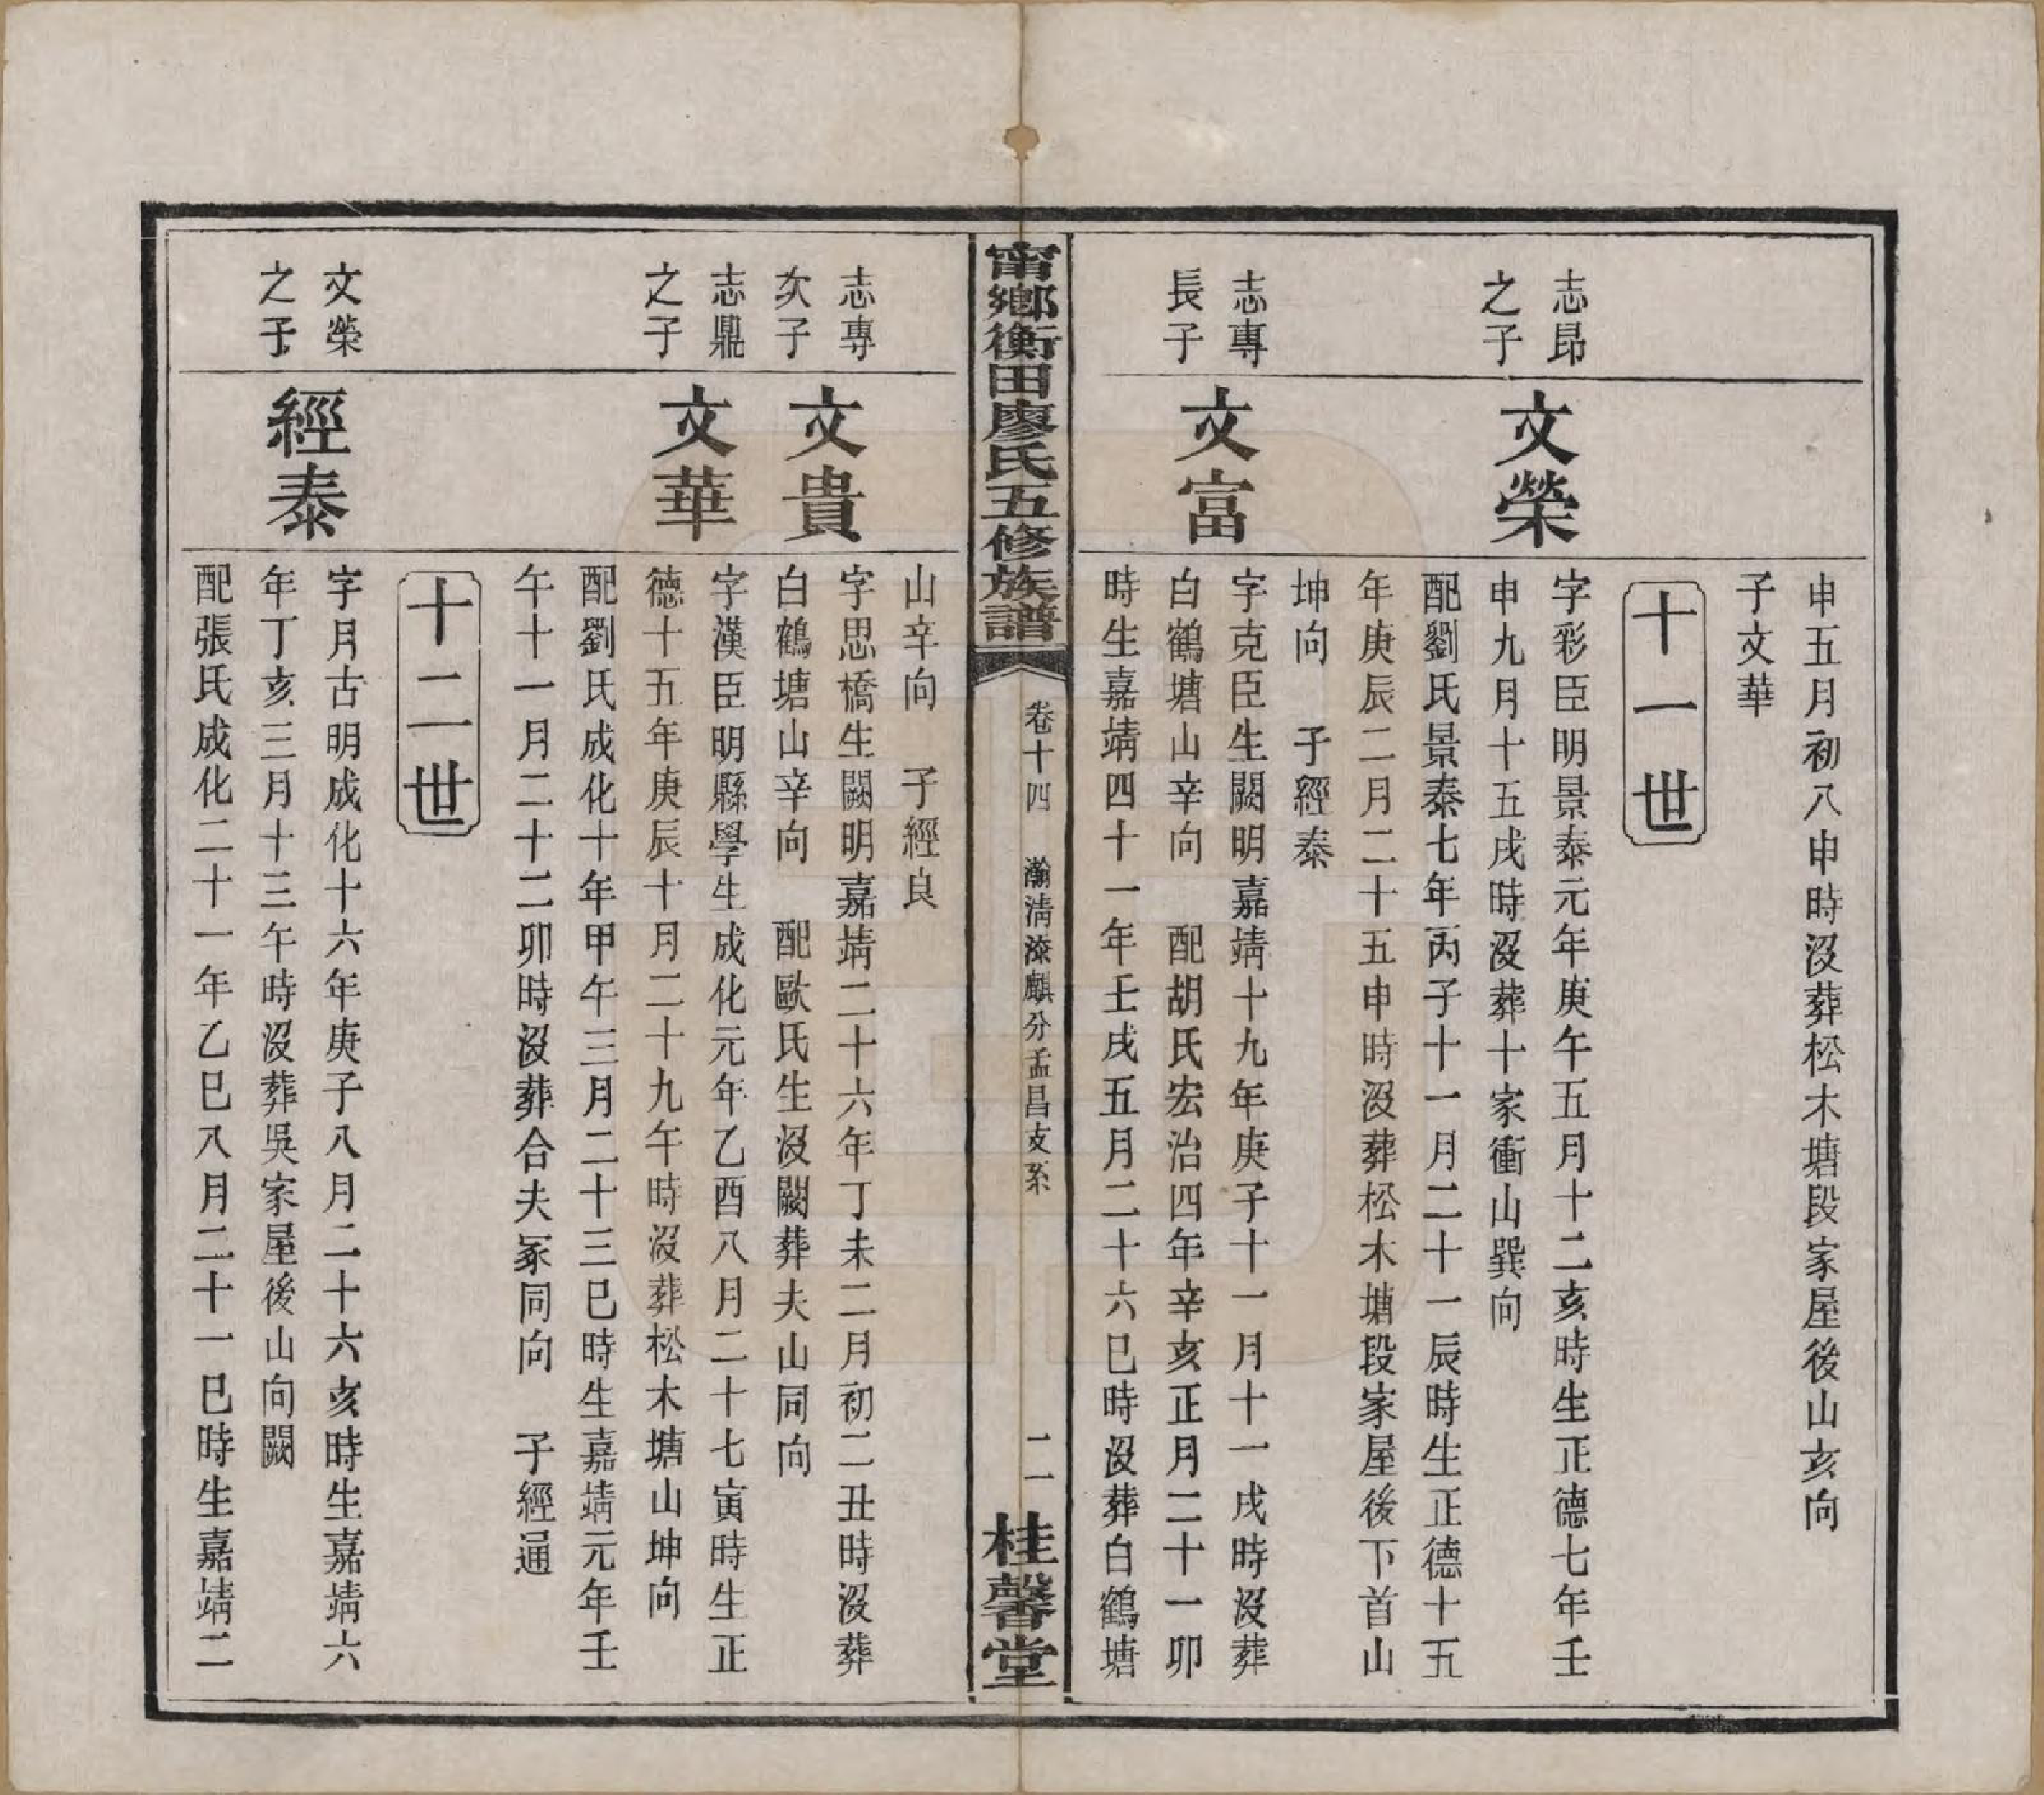 申五月初八申時沒葬松木塘段家屋後山亥向
子文華
十一世
志昂
之子
文榮
字彩臣明景泰元年庚午五月十二亥時生正德七年壬
申九月十五戌時沒葬十家衝山巽向
配劉氏景泰七年丙子十一月二十一辰時生正德十五
年庚辰二月二十五申時沒葬松木塘段家屋後下首山
坤向 子經泰
志專
長子
文富
字克臣生闕明嘉靖十九年庚子十一月十一戌時沒葬
白鶴塘山辛向 配胡氏宏治四年辛亥正月二十一卯
時生嘉靖四十一年壬戌五月二十六巳時沒葬白鶴塘
甯鄉衡田廖氏五修族譜
卷十四 瀚清漆麒分孟昌支系
二一
桂馨堂
山辛向 子經良
志專
次子
文貴
字思橋生闕明嘉靖二十六年丁未二月初二丑時沒葬
白鶴塘山辛向 配歐氏生沒闕葬夫山同向
志鼎
之子
文華
字漢臣明縣學生成化元年乙酉八月二十七寅時生正
德十五年庚辰十月二十九午時沒葬松木塘山坤向
配劉氏成化十年甲午三月二十三巳時生嘉靖元年壬
午十一月二十二卯時沒葬合夫冢同向 子經通
十二世
文榮
之子
經泰
字月古明成化十六年庚子八月二十六亥時生嘉靖六
年丁亥三月十三午時沒葬吳家屋後山向闕
配張氏成化二十一年乙巳八月二十一巳時生嘉靖二